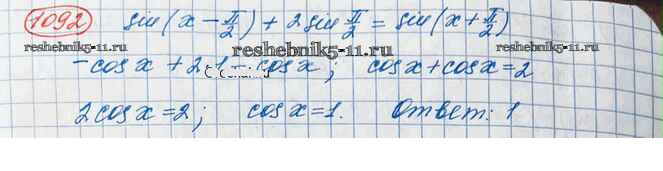 1092 sin(x - π/2) + 2 sin π/2 = sin(x + π/2)
reshebnik5-11.ru reshebnik5-11.ru reshebnik5-11.ru
-cos x + 2·1 = cos x; cos x + cos x = 2
2 cos x = 2; cos x = 1. Ответ: 1